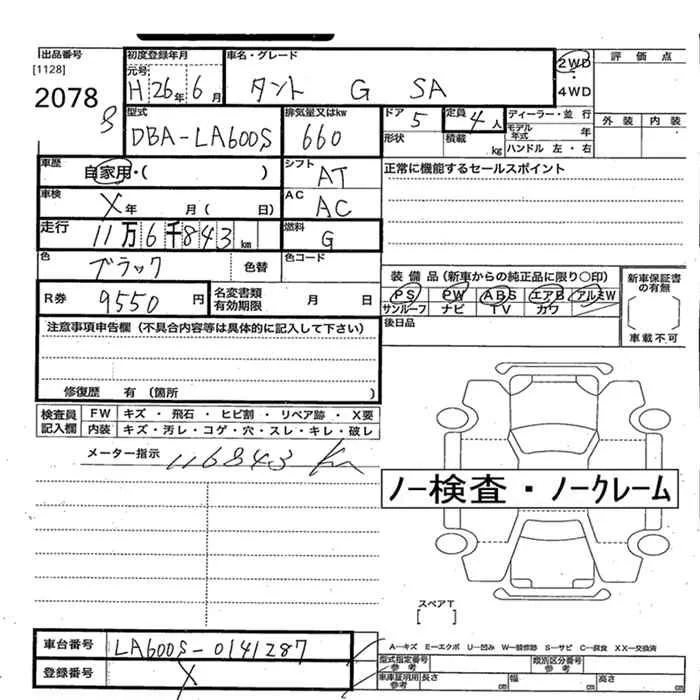 出品番号 初度登録年月 車名・グレード 2WD 評価点
[1128] 元号
2078 H26年6月 タント G SA ・ 4WD
8 型式 排気量又はkw ドア 定員 ディーラー・並行 外装 内装
DBA-LA600S 660 5 4人 モデル年式 年
形状 積載 kg ハンドル 左・右
車歴 自家用・( ) シフト AT 正常に機能するセールスポイント
車検 X年 月( 日) AC AC
走行 11万6千843km 燃料 G
色 ブラック 色替 色コード 装備品(新車からの純正品に限り〇印) 新車保証書の有無
R券 9550円 名変書類有効期限 月 日 PS PW ABS エアB アルミW
サンルーフ ナビ TV カワ
注意事項申告欄(不具合内容等は具体的に記入して下さい) 後日品 車載不可
修復歴 有(箇所 )
検査員記入欄 FW キズ・飛石・ヒビ割・リペア跡・X要
内装 キズ・汚レ・コゲ・穴・スレ・キレ・破レ
メーター指示 116843 km
ノー検査・ノークレーム
スペアT
[ ]
車台番号 LA600S-0141287 A-キズ E-エクボ U-凹み W-補修跡 S-サビ C-腐食 XX-交換済
登録番号 X 型式指定番号 参考 類別区分番号 参考
車庫証明用 参考 長さ cm 幅 cm 高さ cm